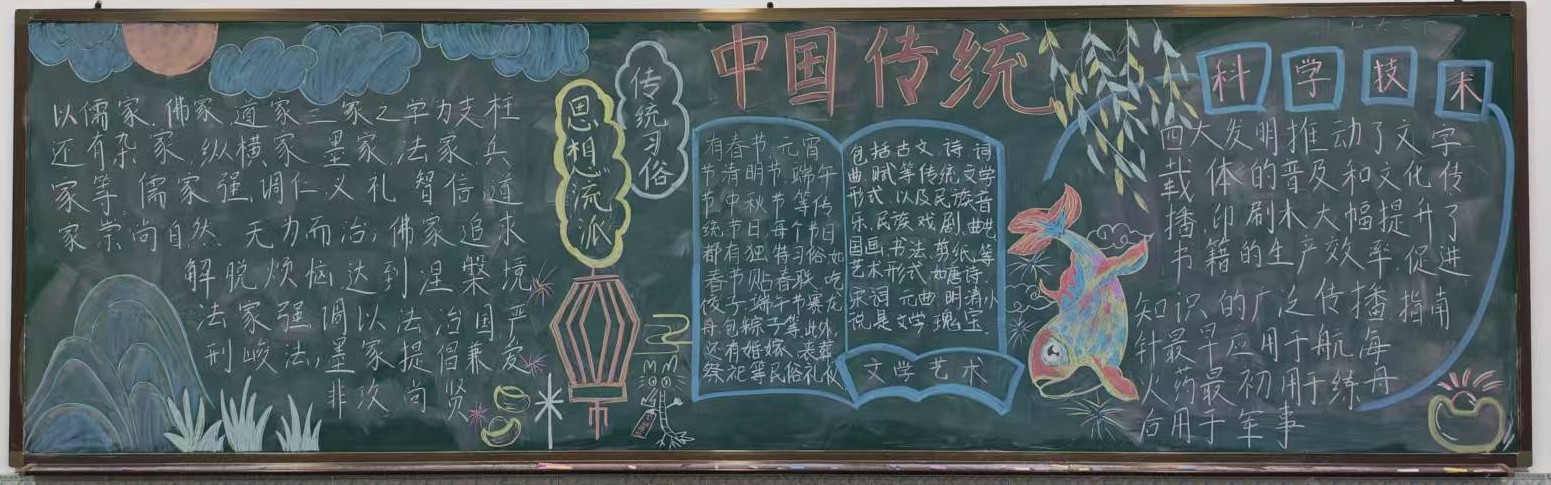 中国传统
以儒家、佛家、道家三家之学为支柱
还有杂家、纵横家、墨家、法家、兵
家等。儒家强调仁义礼智信,道
家崇尚自然、无为而治,佛家追求
解脱烦恼达到涅槃境,
法家强调以法治国严
刑峻法,墨家提倡兼爱
非攻尚贤
思想流派
传统习俗
有春节、元宵
节、清明节、端午
节、中秋节等传
统节日,每个节日
都有独特习俗,如
春节贴春联、吃
饺子,端午节赛龙
舟、包粽子等。此外,
还有婚嫁、丧葬
祭祀等民俗礼仪
包括古文、诗、词
曲、赋等传统文学
形式,以及民族音
乐、民族戏剧、曲艺、
国画、书法、剪纸等
艺术形式,如唐诗、
宋词、元曲、明清小
说是文学瑰宝
文学艺术
科学技术
四大发明推动了文字
载体的普及和文化传
播,印刷术大幅提升了
书籍的生产效率,促进
知识的广泛传播,指南
针最早应用于航海
火药最初用于练丹
后用于军事